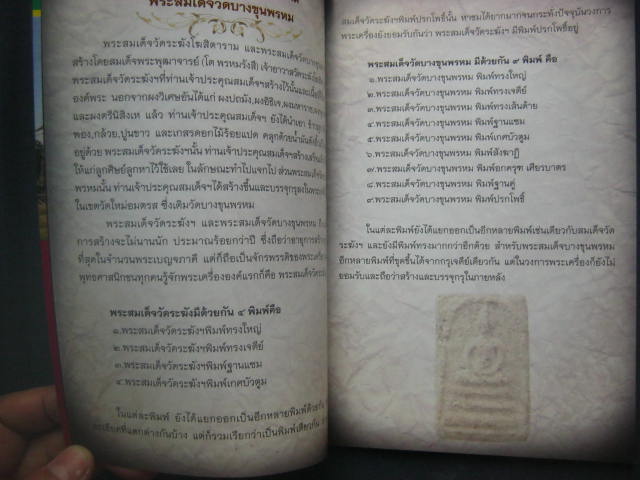 พระสมเด็จวัดบางขุนพรหม
พระสมเด็จวัดระฆังโฆสิตาราม และพระสมเด็จวัดบางขุนพรหม
สร้างโดยสมเด็จพระพุฒาจารย์ (โต พรหมรังสี) เจ้าอาวาสวัดระฆัง
พระสมเด็จวัดระฆังฯที่ท่านเจ้าประคุณสมเด็จฯสร้างไว้นั้น
องค์พระ นอกจากผงวิเศษอันได้แก่ ผงปถมัง,ผงอิธิเจ,ผงมหาราช
และผงตรีนิสิงเห แล้ว ท่านเจ้าประคุณสมเด็จฯ ยังได้นำเอา
ทอง,กล้วย,ปูนขาว และเกสรดอกไม้ร้อยแปด คลุกด้วยน้ำมัน
อยู่ด้วย พระสมเด็จวัดระฆังฯนั้น ท่านเจ้าประคุณสมเด็จฯสร้าง
ให้แก่ลูกศิษย์ลูกหาไว้ใช้เลย ในลักษณะทำไปแจกไป ส่วนพระสมเด็จ
พรหมนั้น ท่านเจ้าประคุณสมเด็จฯได้สร้างขึ้นและบรรจุกรุลงในพระ
ในเขตวัดใหม่อมตรส ซึ่งเดิมวัดบางขุนพรหม
พระสมเด็จวัดระฆังฯ และพระสมเด็จวัดบางขุนพรหม
การสร้างจะไม่นานนัก ประมาณร้อยกว่าปี ซึ่งถือว่าอายุการสร้าง
ที่สุดในจำนวนพระเบญจภาคี แต่ก็ถือเป็นจักรพรรดิของพระเครื่อง
พุทธศาสนิกชนทุกคนรู้จักพระเครื่ององค์แรกก็คือ พระสมเด็จวัดระฆัง
พระสมเด็จวัดระฆังมีด้วยกัน ๔ พิมพ์คือ
๑.พระสมเด็จวัดระฆังฯพิมพ์ทรงใหญ่
๒.พระสมเด็จวัดระฆังฯพิมพ์ทรงเจดีย์
๓.พระสมเด็จวัดระฆังฯพิมพ์ฐานแซม
๔.พระสมเด็จวัดระฆังฯพิมพ์เกศบัวตูม
ในแต่ละพิมพ์ ยังได้แยกออกเป็นอีกหลายพิมพ์ด้วยกัน
ละเอียดที่แตกต่างกันบ้าง แต่ก็รวมเรียกว่าเป็นพิมพ์เดียวกัน
สมเด็จวัดระฆังฯพิมพ์ปรกโพธิ์นั้น หาชมได้ยากมากจนกระทั่งปัจจุบันวงการ
พระเครื่องยังยอมรับกันว่า พระสมเด็จวัดระฆังฯ มีพิมพ์ปรกโพธิ์อยู่
พระสมเด็จวัดบางขุนพรหม มีด้วยกัน ๙ พิมพ์ คือ
๑.พระสมเด็จวัดบางขุนพรหม พิมพ์ทรงใหญ่
๒.พระสมเด็จวัดบางขุนพรหม พิมพ์ทรงเจดีย์
๓.พระสมเด็จวัดบางขุนพรหม พิมพ์ทรงเส้นด้าย
๔.พระสมเด็จวัดบางขุนพรหม พิมพ์ฐานแซม
๕.พระสมเด็จวัดบางขุนพรหม พิมพ์เกศบัวตูม
๖.พระสมเด็จวัดบางขุนพรหม พิมพ์สังฆาฏิ
๗.พระสมเด็จวัดบางขุนพรหม พิมพ์อกครุฑ เศียรบาตร
๘.พระสมเด็จวัดบางขุนพรหม พิมพ์ฐานคู่
๙.พระสมเด็จวัดบางขุนพรหม พิมพ์ปรกโพธิ์
ในแต่ละพิมพ์ยังได้แยกออกเป็นอีกหลายพิมพ์เช่นเดียวกับสมเด็จวัด
ระฆังฯ และยังมีพิมพ์ทรงมากกว่าอีกด้วย สำหรับพระสมเด็จบางขุนพรหม
อีกหลายพิมพ์ที่ขุดขึ้นได้จากกรุเจดีย์เดียวกัน แต่ในวงการพระเครื่องก็ยังไม่
ยอมรับและถือว่าสร้างและบรรจุกรุในภายหลัง